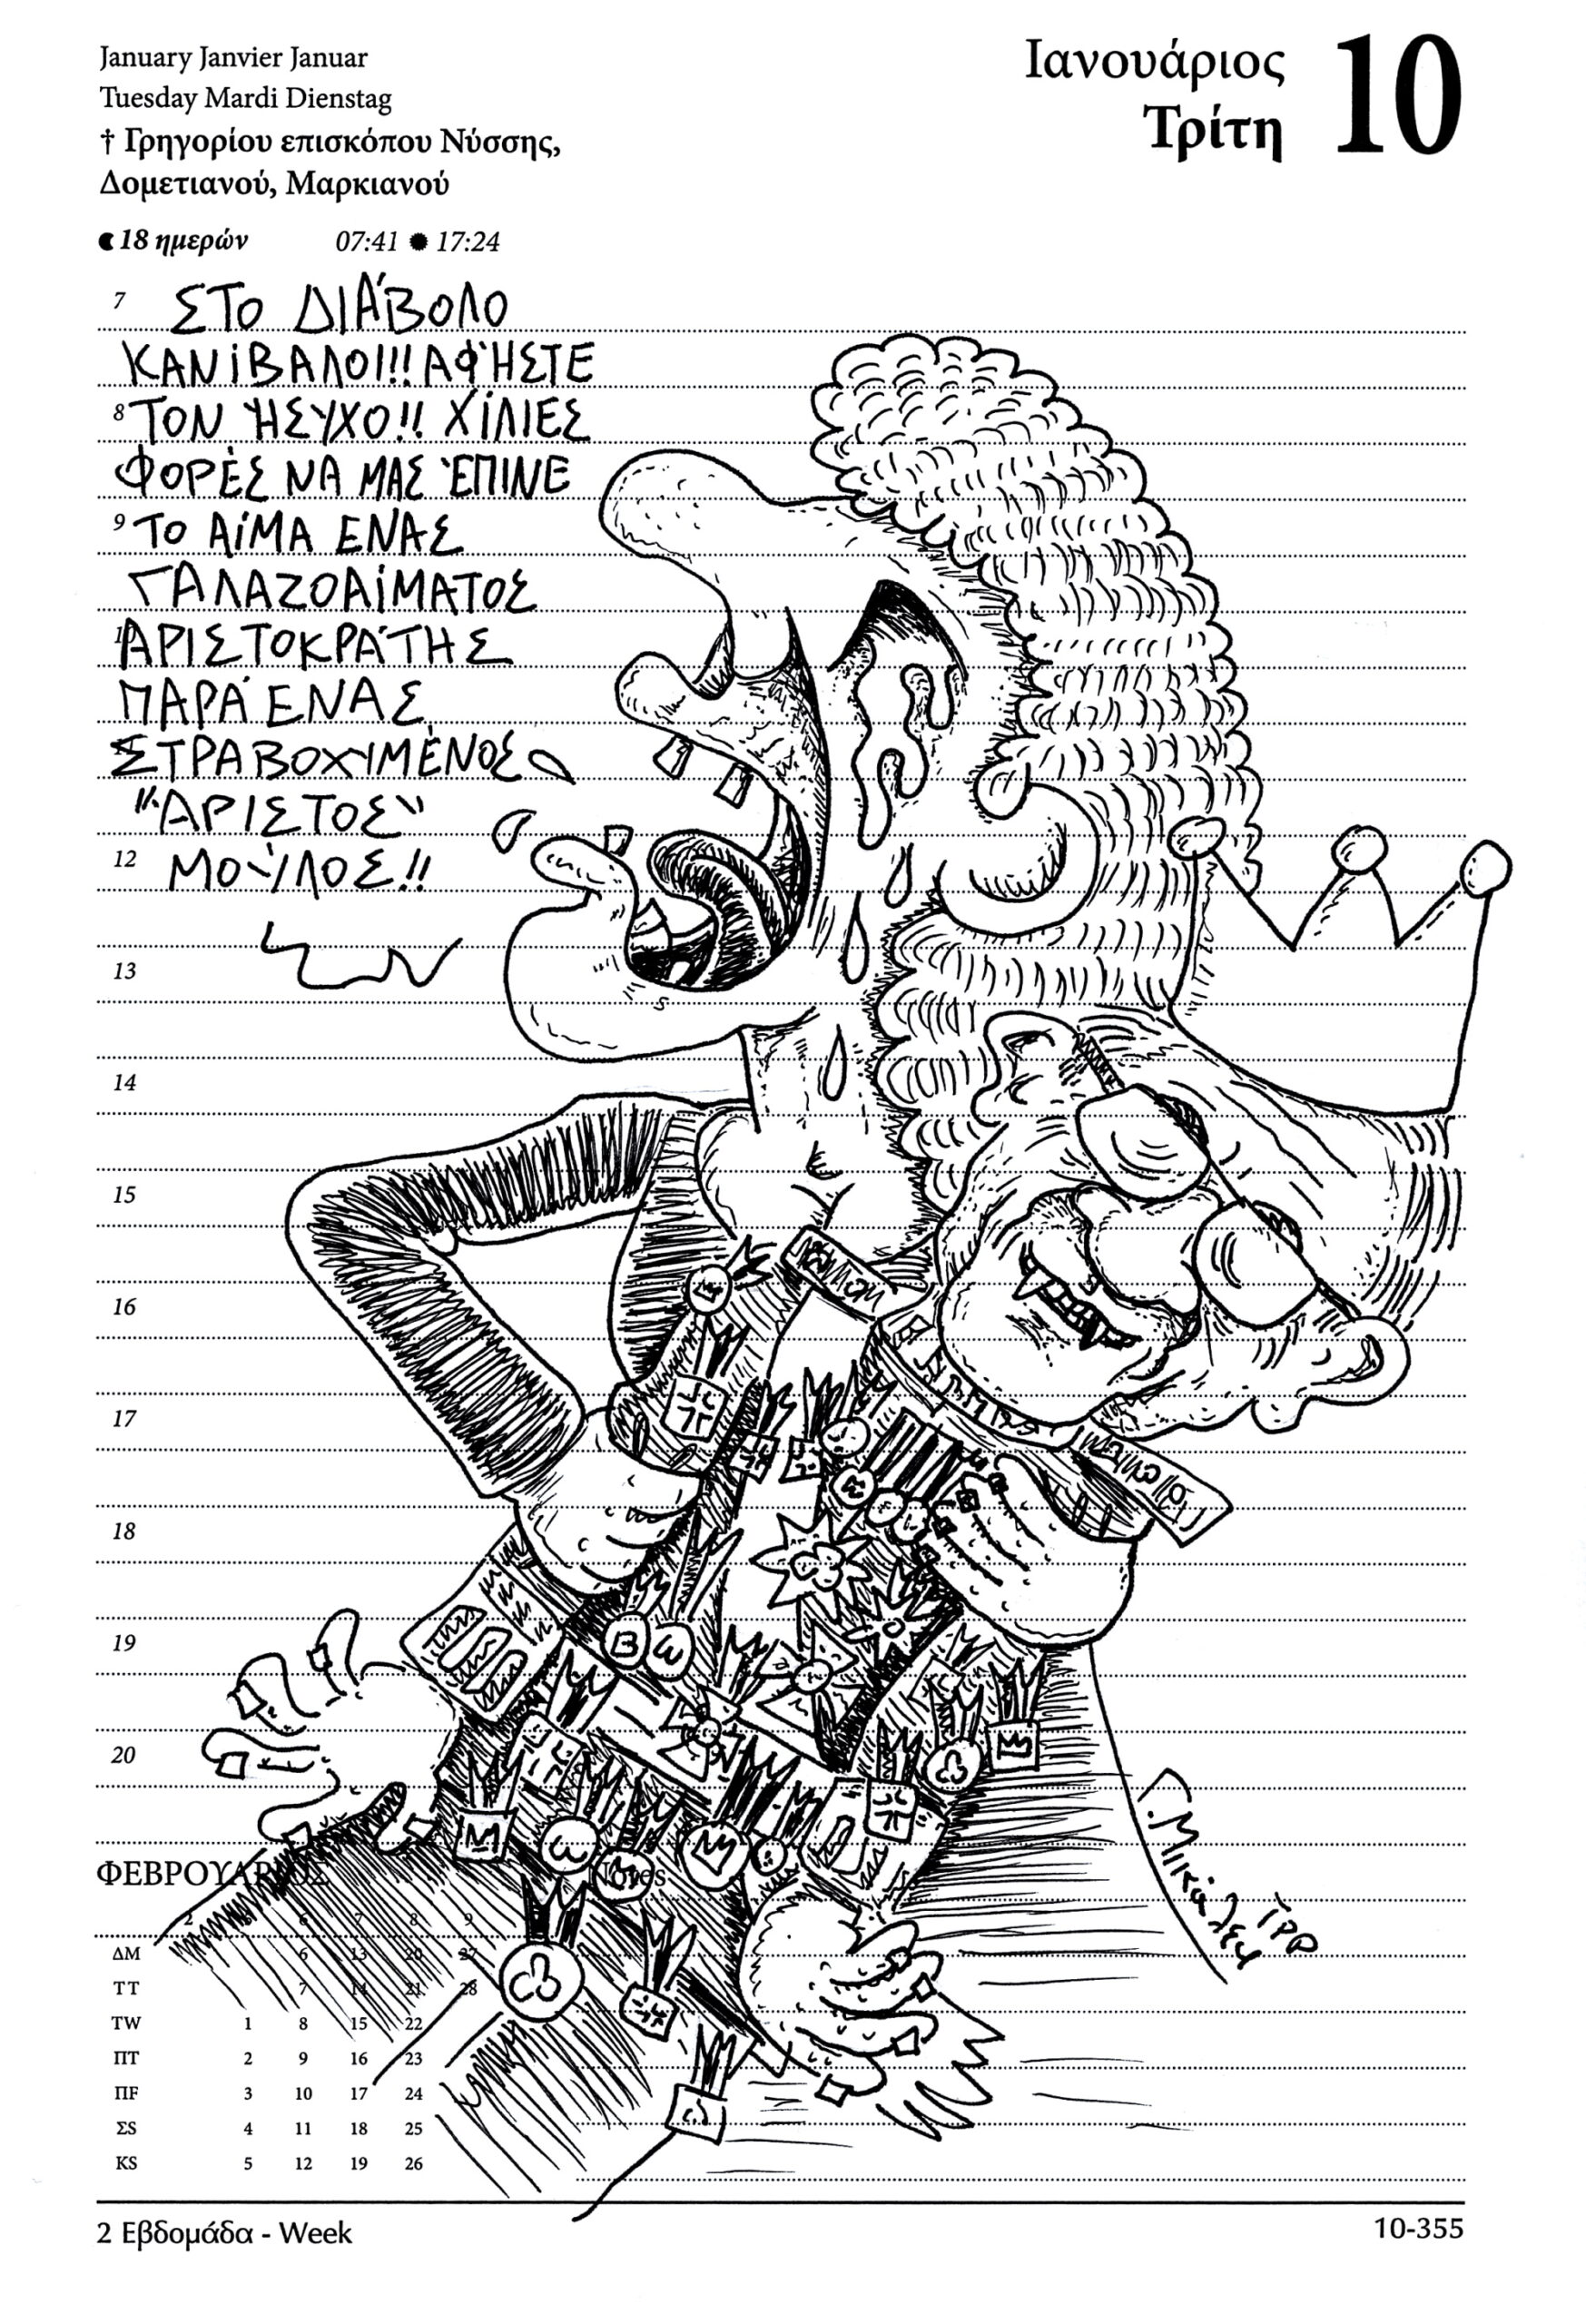 January Janvier Januar
Tuesday Mardi Dienstag
† Γρηγορίου επισκόπου Νύσσης,
Δομετιανού, Μαρκιανού
18 ημερών 07:41 17:24
Ιανουάριος
Τρίτη
10
7 ΣΤΟ ΔΙΆΒΟΛΟ
ΚΑΝΊΒΑΛΟΙ!!! ΑΦΉΣΤΕ
8 ΤΟΝ ΉΣΥΧΟ!! ΧΊΛΙΕΣ
ΦΟΡΈΣ ΝΑ ΜΑΣ ΈΠΙΝΕ
9 ΤΟ ΑΊΜΑ ΕΝΑΣ
ΓΑΛΑΖΟΑΊΜΑΤΟΣ
ΑΡΙΣΤΟΚΡΆΤΗΣ
ΠΑΡΆ ΕΝΑΣ
ΣΤΡΑΒΟΧΥΜΈΝΟΣ
"ΑΡΙΣΤΟΣ"
12 ΜΟΎΛΟΣ!!
13
14
15
16
17
18
19
20
Γ. Μικάλεφ
ΦΕΒΡΟΥΑΡΙΟΣ Notes
ΔΜ 6 13 20 27
ΤΤ 7 14 21 28
TW 1 8 15 22
ΠΤ 2 9 16 23
ΠF 3 10 17 24
ΣS 4 11 18 25
KS 5 12 19 26
2 Εβδομάδα - Week
10-355